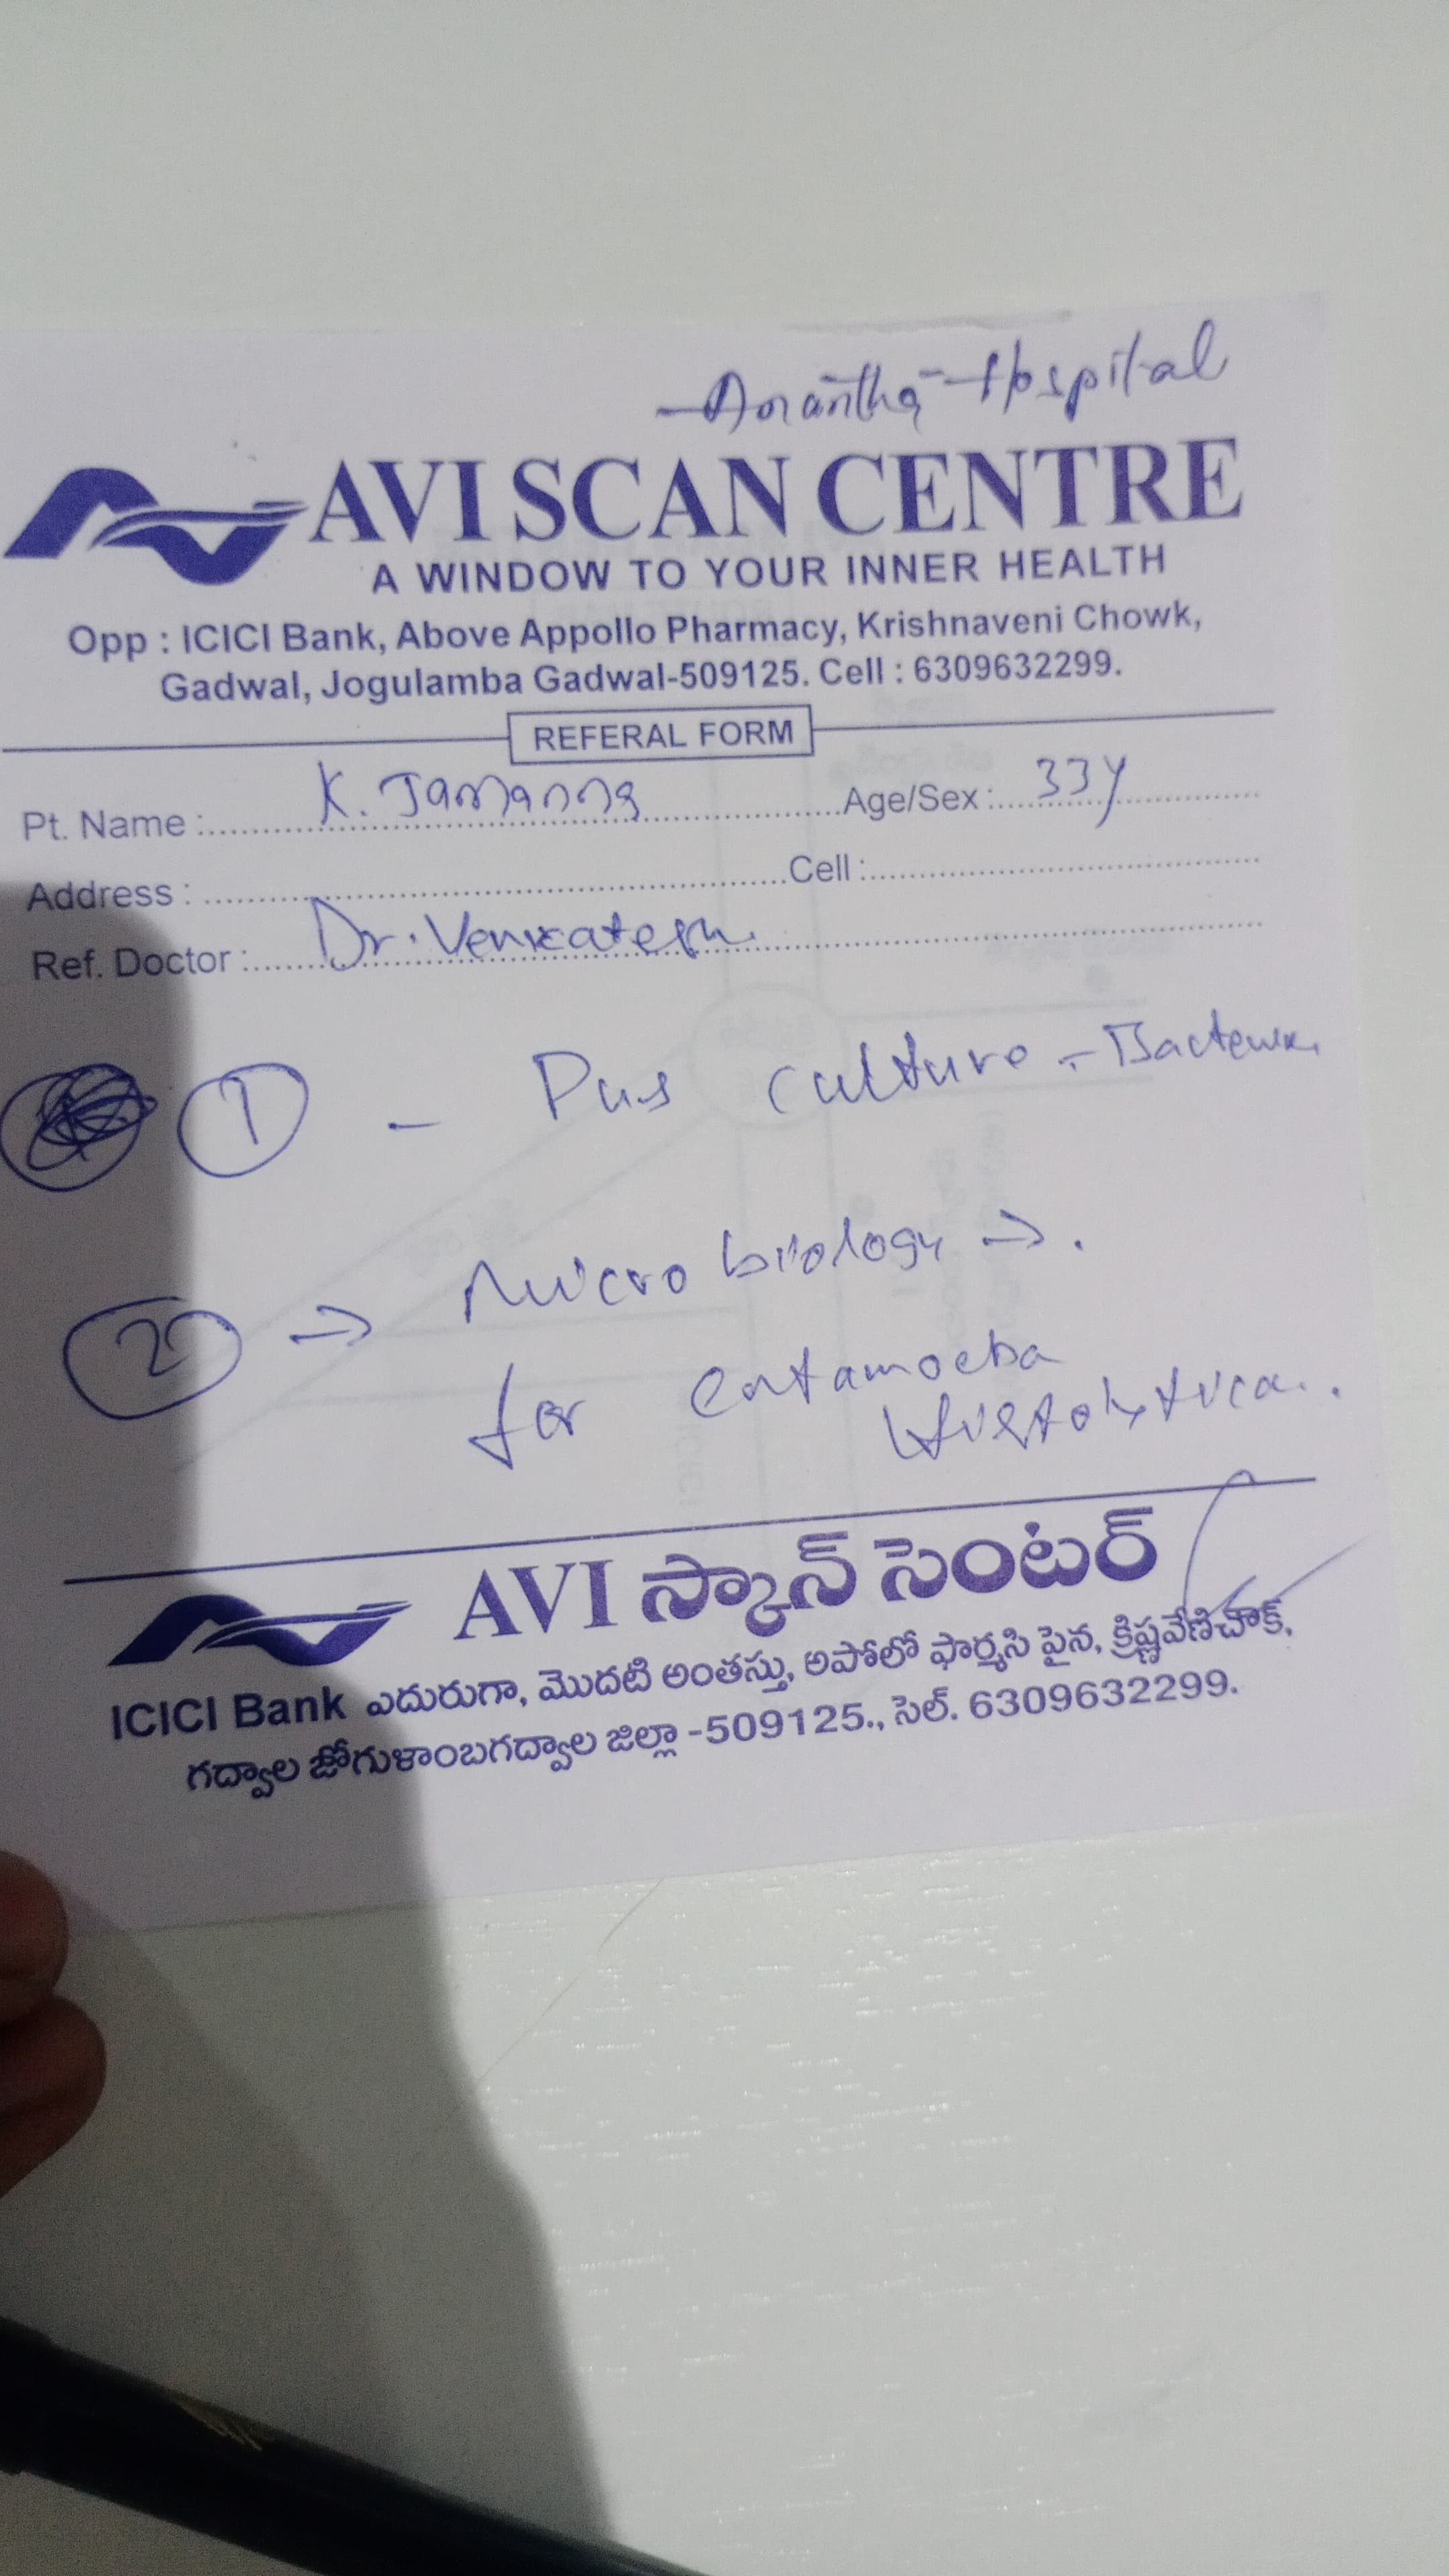 Anantha Hospital
AVI SCAN CENTRE
A WINDOW TO YOUR INNER HEALTH
Opp : ICICI Bank, Above Appollo Pharmacy, Krishnaveni Chowk,
Gadwal, Jogulamba Gadwal-509125. Cell : 6309632299.
REFERAL FORM
Pt. Name : K. Jamanna Age/Sex : 33y
Address : Cell :
Ref. Doctor : Dr. Venkatesh
1 - Pus culture - Bacteria
2 → Microbiology →.
for entamoeba
Histolytica..
AVI స్కాన్ సెంటర్
ICICI Bank ఎదురుగా, మొదటి అంతస్తు, అపోలో ఫార్మసి పైన, క్రిష్ణవేణిచౌక్,
గద్వాల జోగుళాంబగద్వాల జిల్లా -509125., సెల్. 6309632299.